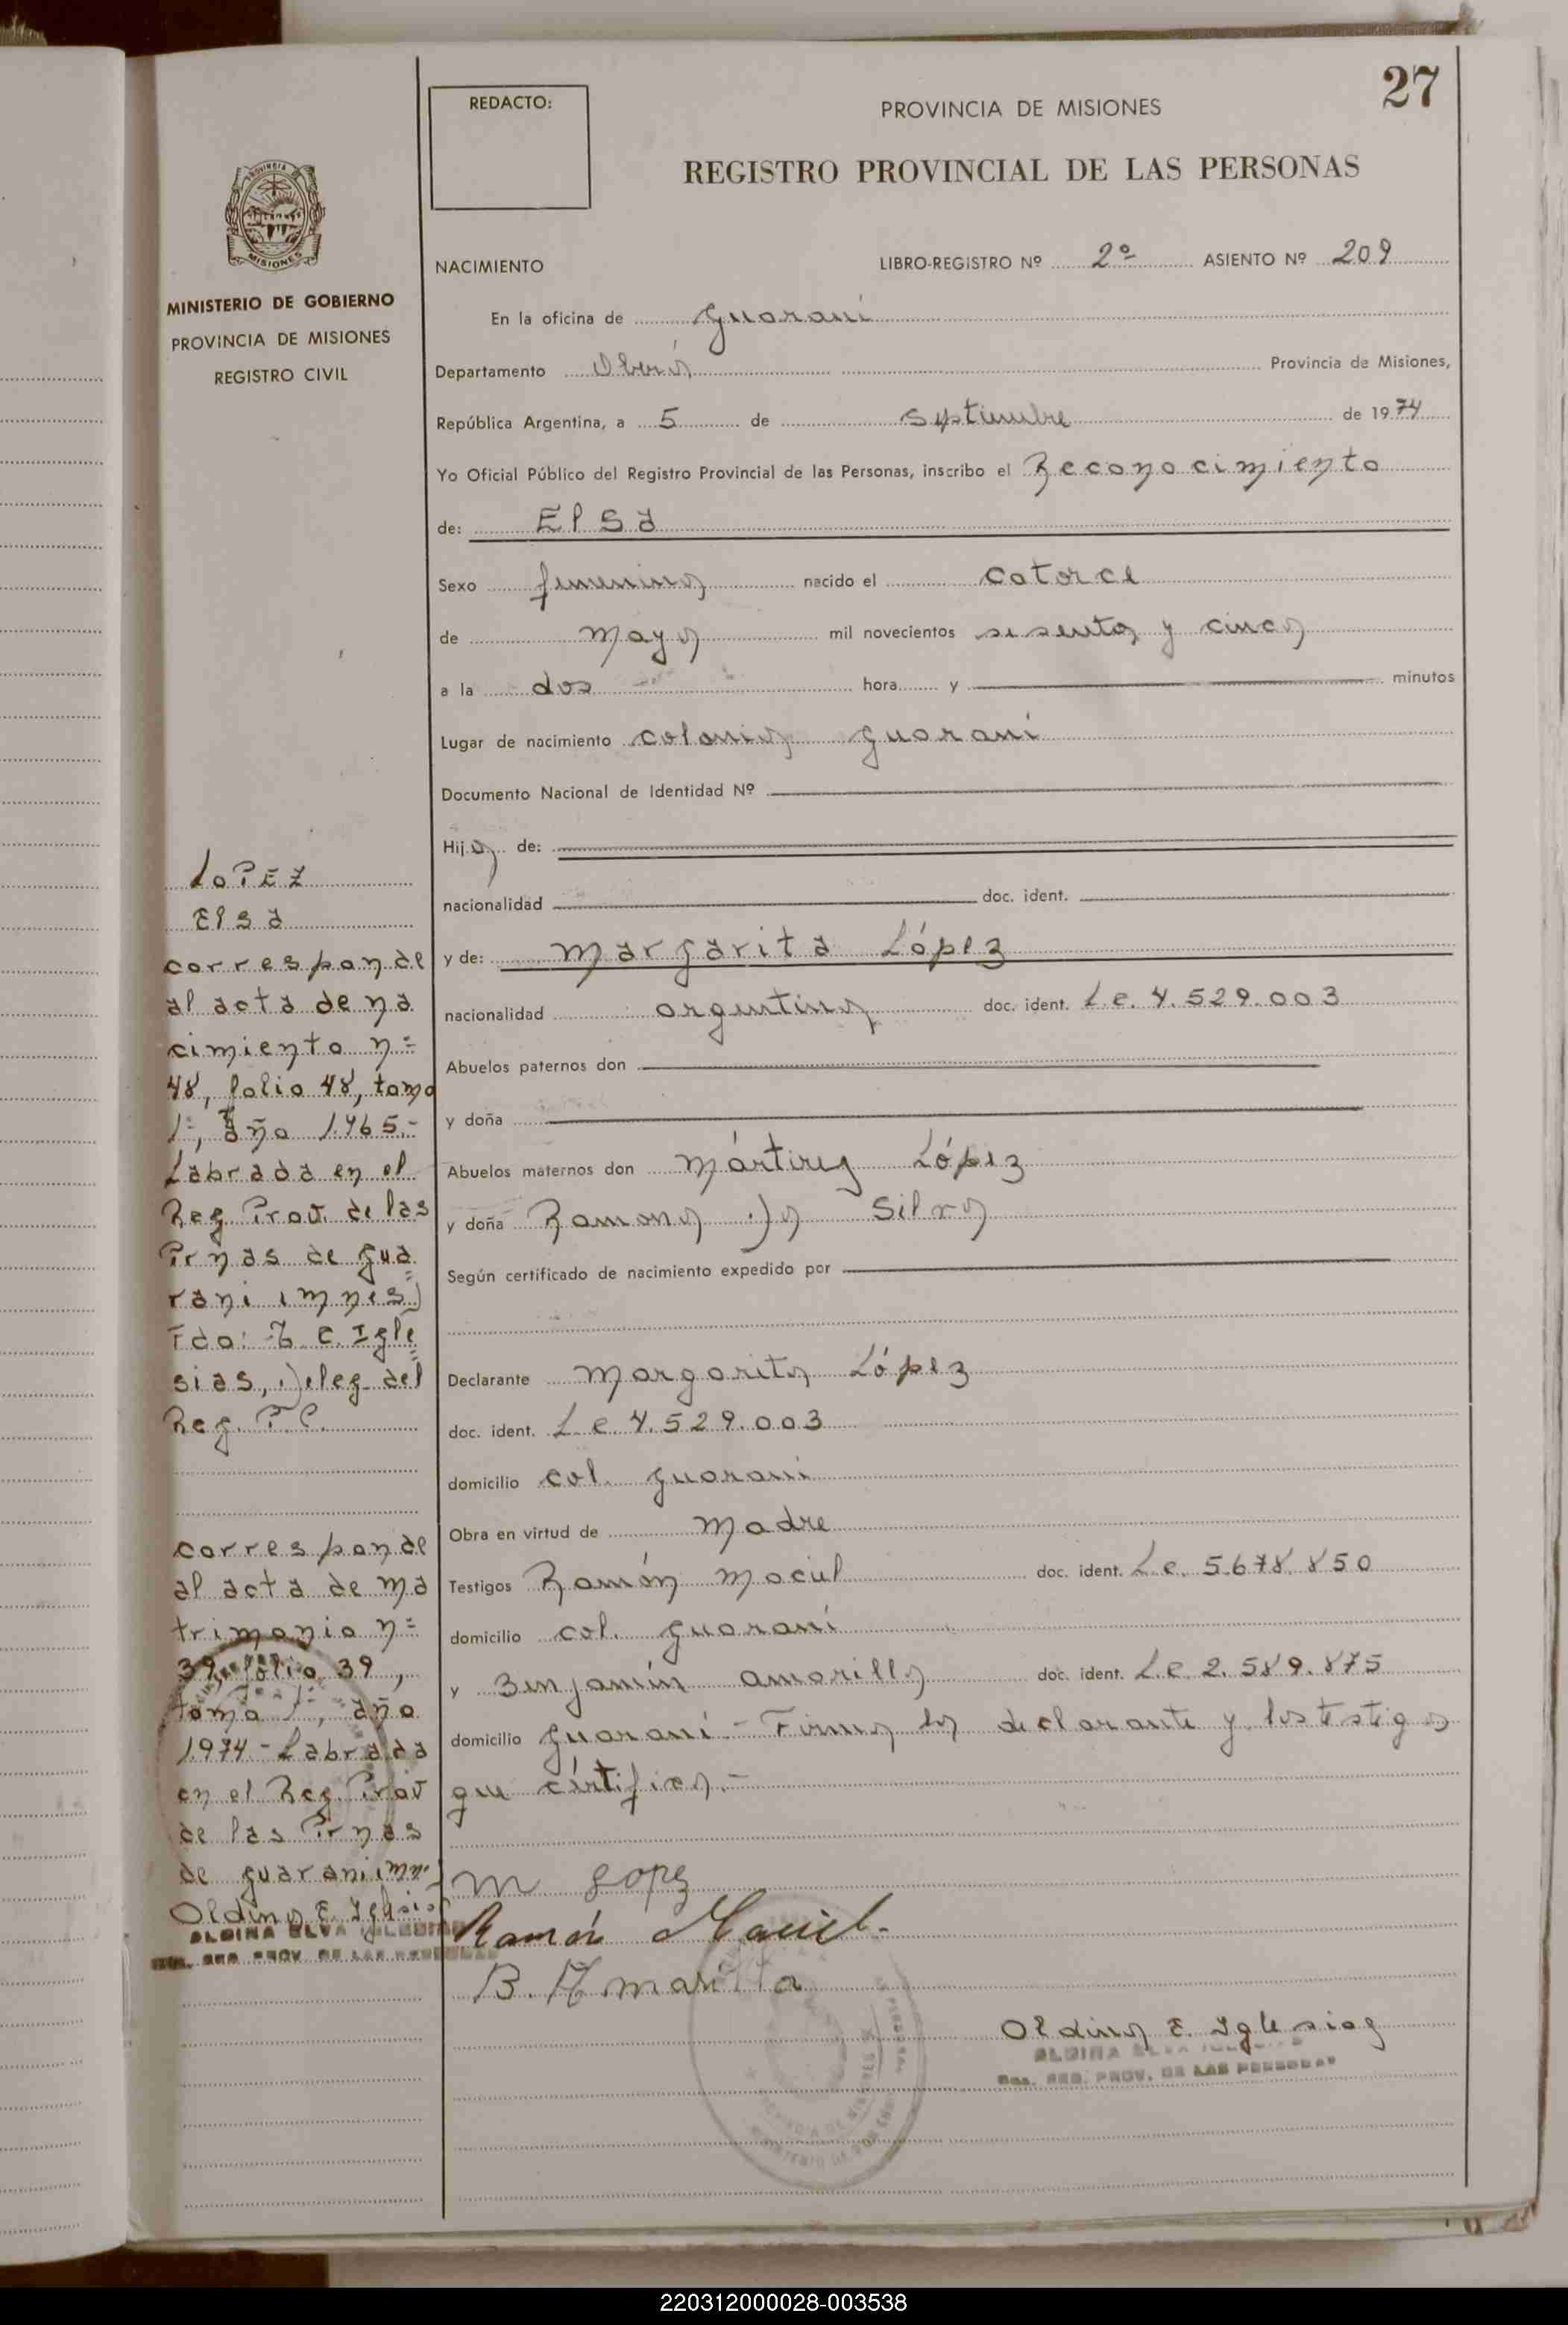 27
REDACTO:
PROVINCIA DE MISIONES
REGISTRO PROVINCIAL DE LAS PERSONAS
PROVINCIA DE
MISIONES
MINISTERIO DE GOBIERNO
PROVINCIA DE MISIONES
REGISTRO CIVIL
NACIMIENTO LIBRO-REGISTRO Nº 2º ASIENTO Nº 209
En la oficina de Guaraní
Departamento Oberá Provincia de Misiones,
República Argentina, a 5 de septiembre de 1974
Yo Oficial Público del Registro Provincial de las Personas, inscribo el Reconocimiento
de: Elsa
Sexo femenino nacido el catorce
de mayo mil novecientos sesenta y cinco
a la dos hora y minutos
Lugar de nacimiento colonia Guaraní
Documento Nacional de Identidad Nº
Hija de:
nacionalidad doc. ident.
y de: Margarita López
nacionalidad argentina doc. ident. L.C. 4.529.003
Abuelos paternos don
y doña
Abuelos maternos don Mártires López
y doña Ramona Da Silva
Según certificado de nacimiento expedido por
Declarante Margarita López
doc. ident. L.C. 4.529.003
domicilio col. Guaraní
Obra en virtud de madre
Testigos Ramón Maciel doc. ident. L.E. 5678.850
domicilio col. Guaraní
y Benjamín Amarilla doc. ident. L.E. 2.589.875
domicilio Guaraní - Firma la declarante y los testigos
que certifico.-
M Lopez
Ramón Maciel.
B. Amarilla
Oldina E. Iglesias
DEL. REG. PROV. DE LAS PERSONAS
LOPEZ
Elsa
corresponde
al acta de na
cimiento nº
48, folio 48, tomo
1º, año 1.965.-
Labrada en el
Reg. Prov. de las
Prnas de Gua
raní (mnes)
Fdo: E. Igle
sias, Deleg del
Reg. P.P.
corresponde
al acta de ma
trimonio nº
39, folio 39,
tomo 1º, año
1.974 - Labrada
en el Reg. Prov
de las Prnas
de guaraní (mn
Oldina E. Iglesias
220312000028-003538